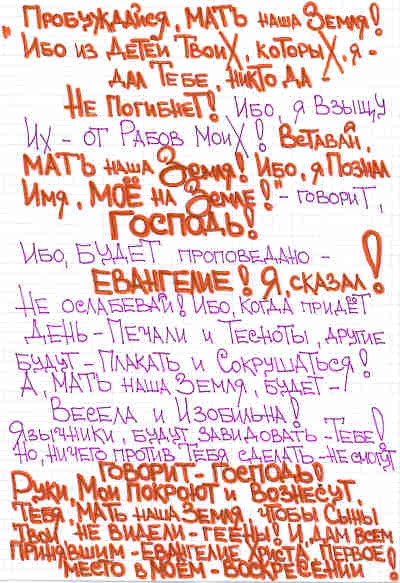 "Пробуждайся, МАТЬ наша Земля!
Ибо из Детей Твоих, которых, я -
дал Тебе, никто да -
Не Погибнет! Ибо, я Взыщу
Их - от Рабов Моих! Вставай,
МАТЬ наша Земля! Ибо, я Познал
Имя, МОЁ на Земле!" - говорит,
Господь!
Ибо, БУДЕТ проповедано -
ЕВАНГЕЛИЕ! Я, сказал!
Не ослабевай! Ибо, когда придёт
День - Печали и Тесноты, другие
будут - Плакать и Сокрушаться!
А, МАТЬ наша Земля, будет -
Весела и Изобильна!
Язычники, будут завидовать - Тебе!
Но, ничего против Тебя сделать - не смогут
говорит - Господь!
Руки, Мои покроют и вознесут,
Тебя, Мать наша Земля, чтобы Сыны
Твои не видели - геены! И, дам всем
принявшим - Евангелие Христа, Первое
место в моём - Воскресении!